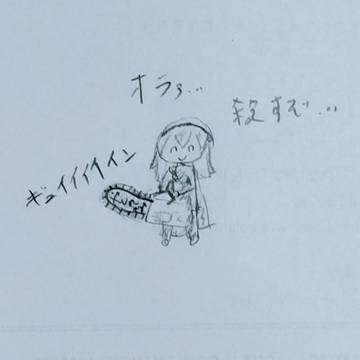 オラぅ...
殺すぞ...
ギュイイイイイン